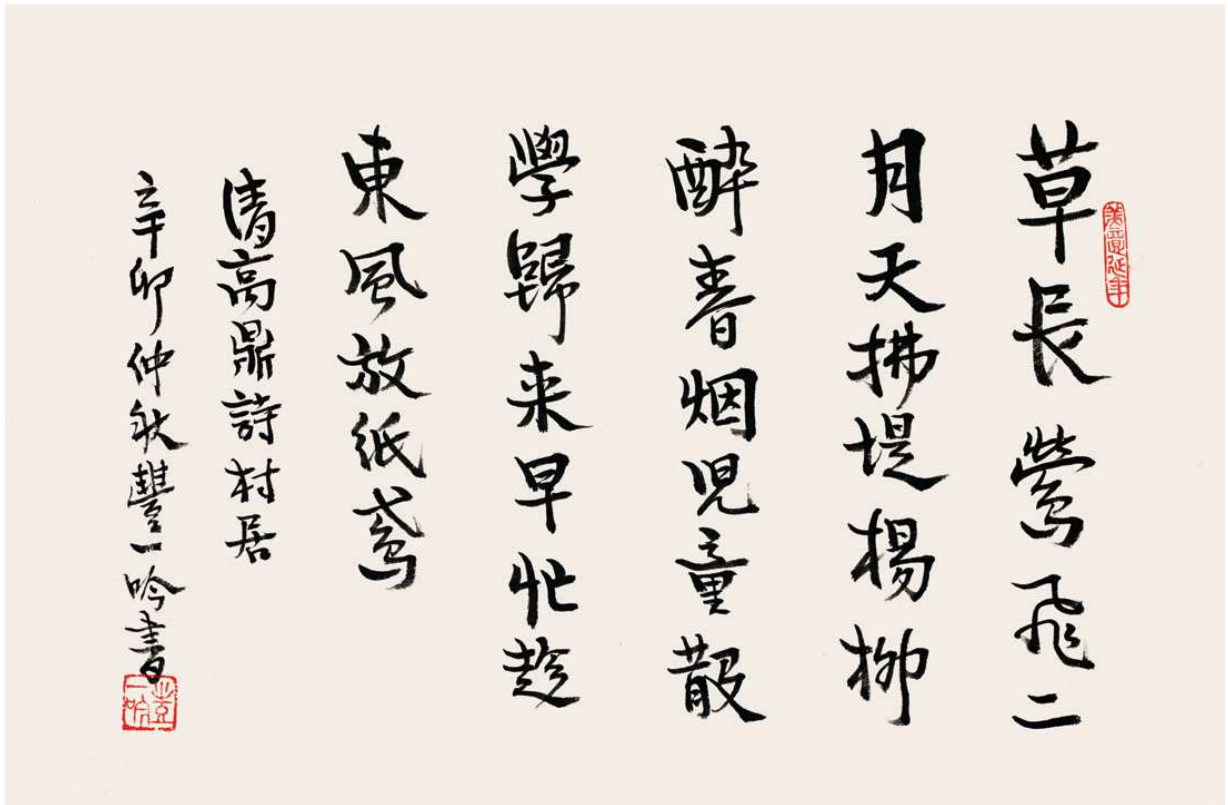 草長鶯飛二
月天拂堤楊柳
醉春烟児童散
學歸来早忙趁
東風放紙鳶
清高鼎詩村居
辛卯仲秋豐一吟書
豐一吟